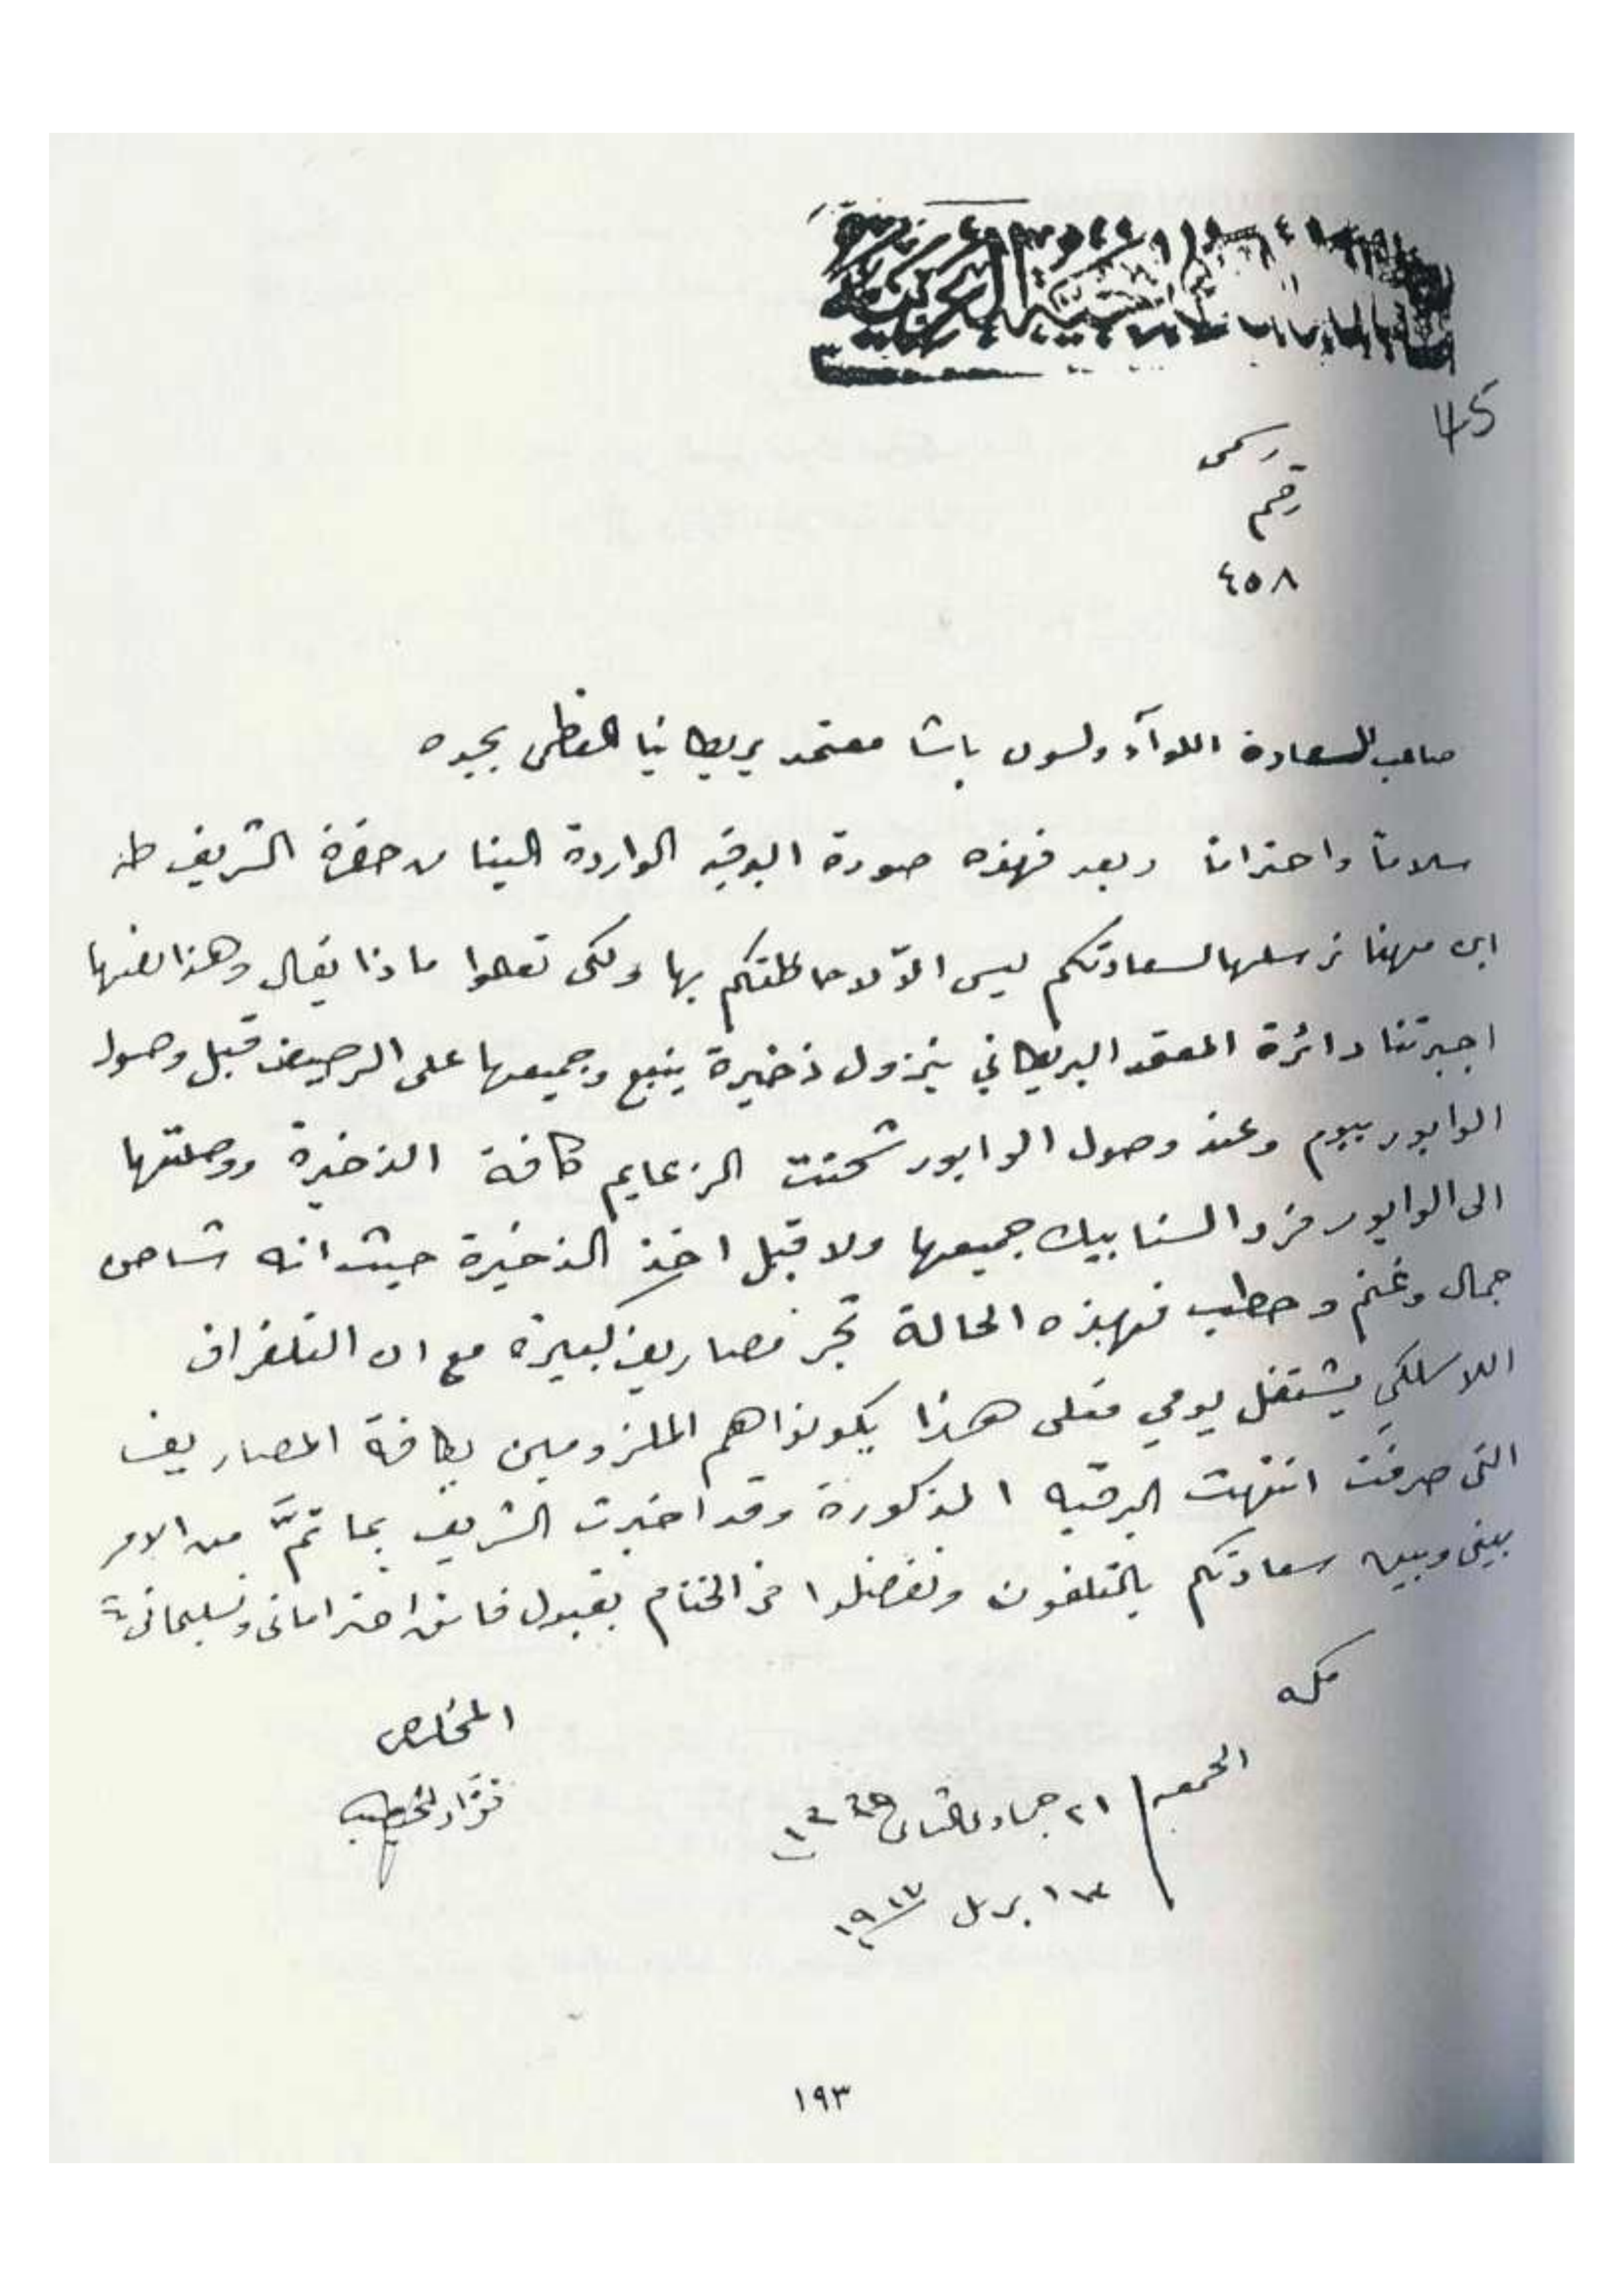 45
رسمى
رقم
٤٥٨
صاحب السعادة اللوآء ولسون باشا معتمد بريطانيا العظمى بجده
سلاماً واحتراماً وبعد فهذه صورة البرقيه الواردة الينا من حضرة الشريف طه
ابن مهنا نرسلها لسعادتكم ليس الاّ لاحاطتكم بها ولكى تعلموا ماذا يقال وهذا نصها
اجبرتنا دائرة المعتمد البريطاني بنزول ذخيرة ينبع وجميعها على الرصيف قبل وصول
الوابور بيوم وعند وصول الوابور شحنت الزعايم كافة الذخيرة ووصلتها
الى الوابور فرد السنابيك جميعها ولا قبل اخذ الذخيرة حيث انه شاحن
جمال وغنم وحطب فبهذه الحالة تجر مصاريف كبيرة مع ان التلغراف
اللاسلكي يشتغل يومي فعلى هذا يكونوا هم الملزومين بكافة المصاريف
التى صرفت انتهت البرقيه المذكورة وقد اخبرت الشريف بما تمَّ من الامر
بينى وبين سعادتكم بالتلفون وتفضلوا فى الختام بقبول فائق احتراماتى وتسليماتى
مكه
المخلص
فؤاد الخطيب
الجمعه
٢١ جماد الثانى ١٣٣٥
١٣ ابريل ١٩١٧
١٩٣